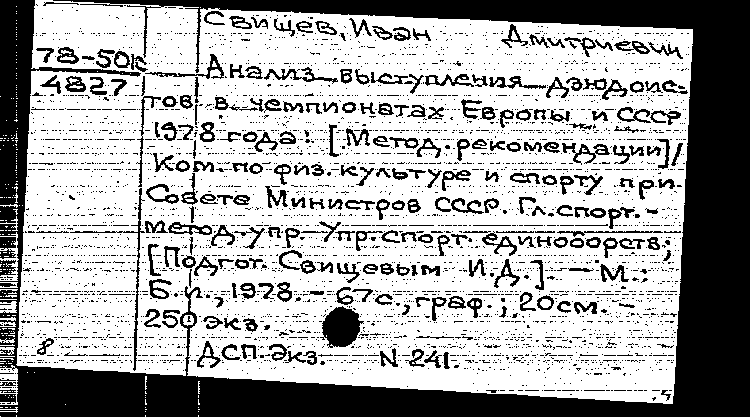 Свищев, Иван Дмитриевич
78-50к
4827
Анализ выступления дзюдоис-
тов в чемпионатах Европы и СССР
1978 года: [Метод. рекомендации]/
Ком. по физ. культуре и спорту при
Совете Министров СССР. Гл. спорт.-
метод. упр. Упр. спорт. единоборств;
[Подгот. Свищевым И.Д.]. — М.:
Б. и., 1978. - 67 с., граф.; 20 см. -
250 экз.
8
ДСП. Экз. N 241.